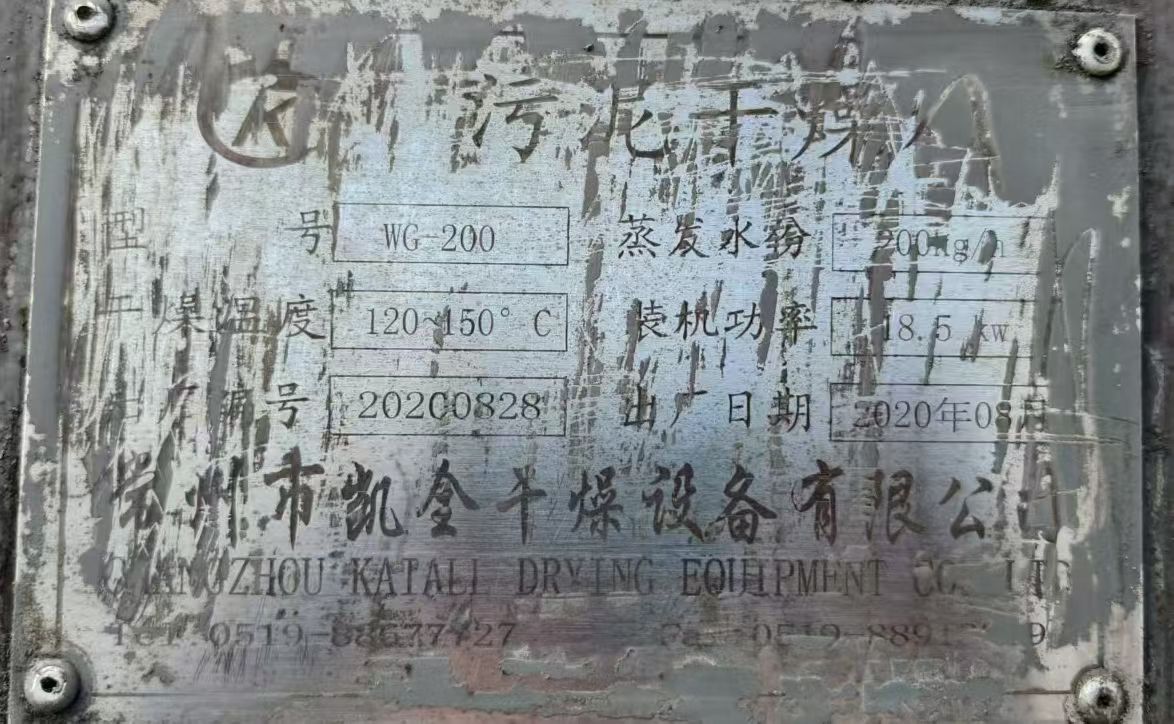 污泥干燥
型号 WG-200 蒸发水份 200kg/h
干燥温度 120~150°C 装机功率 18.5 kw
出厂编号 20200828 出厂日期 2020年08月
常州市凯全干燥设备有限公司
CHANGZHOU KAIALL DRYING EQUIPMENT CO. LTD
Tel 0519- Fax 0519-